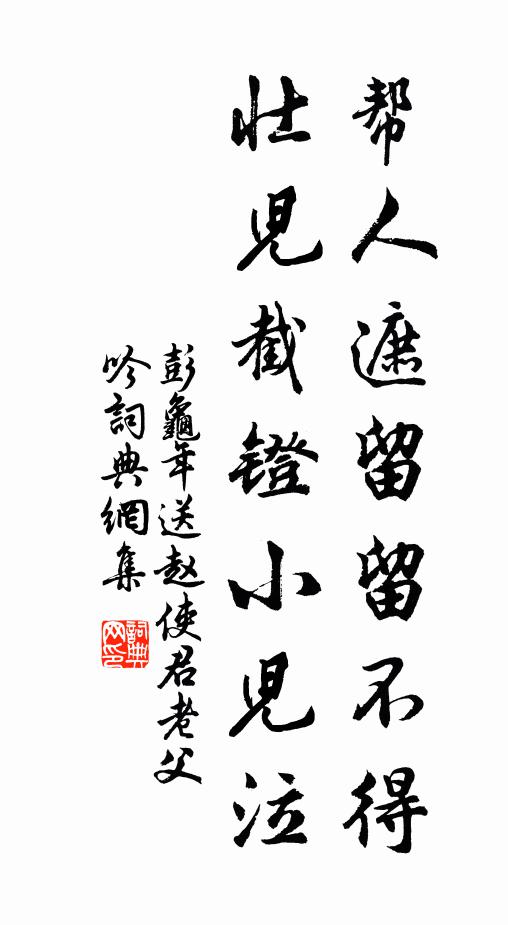 帮人遮留留不得
壮児截镫小児泣
彭龜年送赵使君老父
吟詞典網集
詞典网印